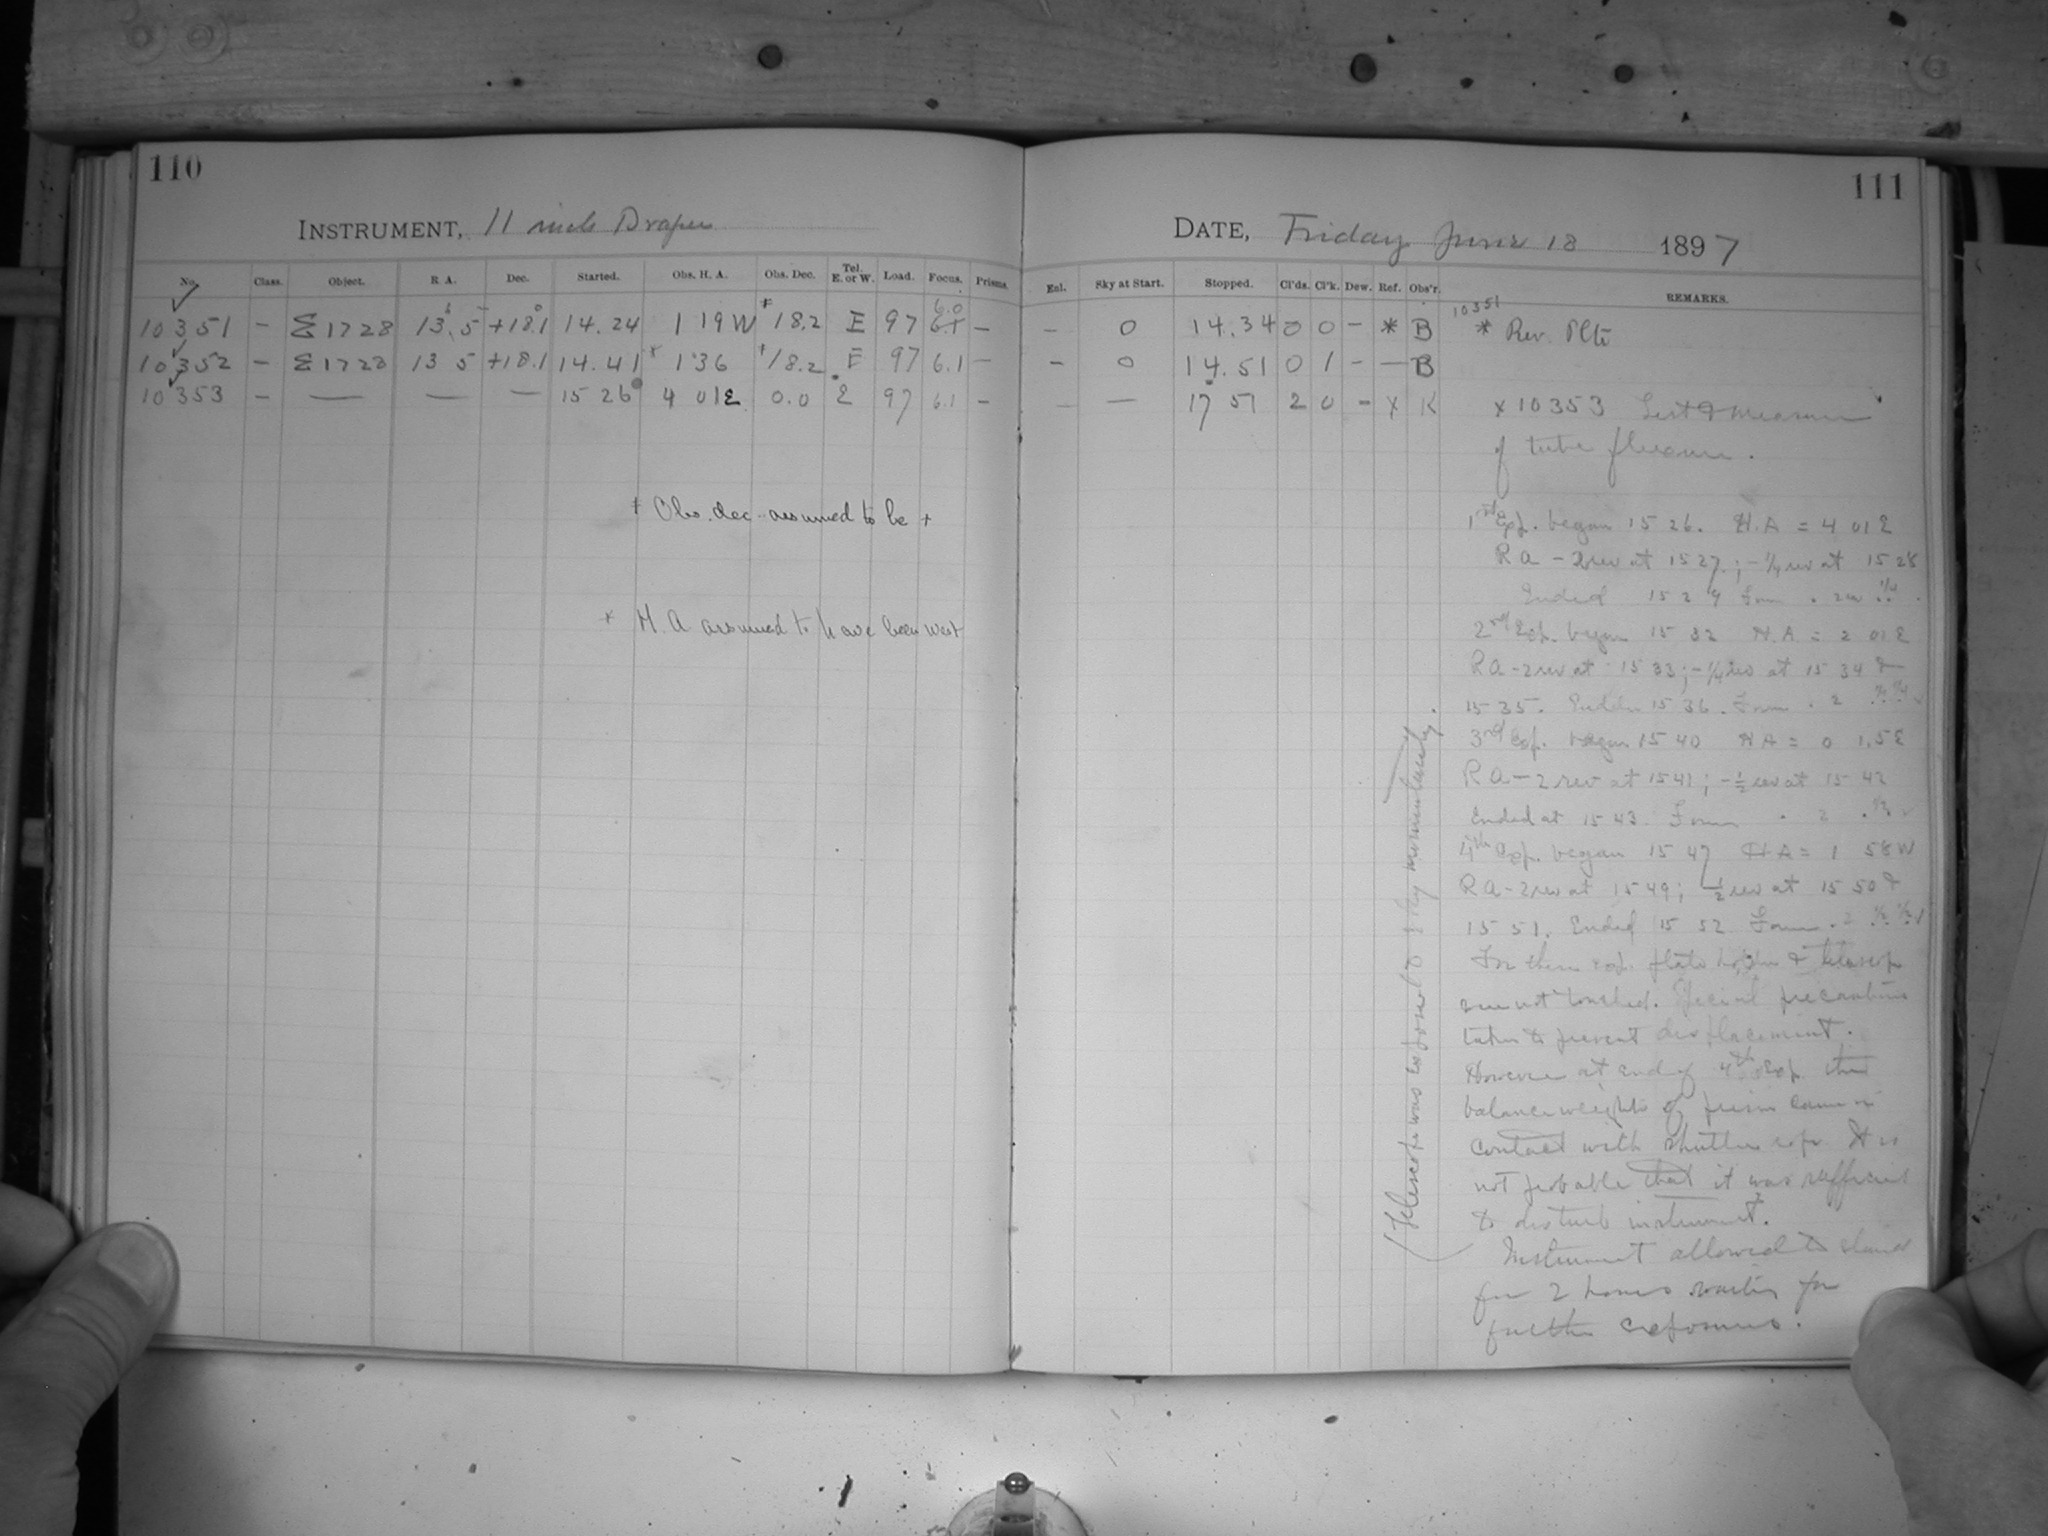 110
INSTRUMENT, 11 inch Draper
No. Class. Object. R. A. Dec. Started. Obs. H. A. Obs. Dec. Tel. E. or W. Load. Focus. Prisms.
10351 – Σ1728 13h 5 +18°.1 14.24 1 19W ‡18.2 E 97 6.0 6.1 –
10352 – Σ1728 13 5 +18.1 14.41 x 1 36 ‡18.2 E 97 6.1 –
10353 – — — — 15 26 4 01E 0.0 E 97 6.1 –
‡ Obs. dec. assumed to be +
x H. A assumed to have been west
111
DATE, Friday June 18 1897
Enl. Sky at Start. Stopped. Cl'ds. Cl'k. Dew. Ref. Obs'r. REMARKS.
– 0 14.34 0 0 – * B 10351 * Rev. Plte
– 0 14.51 0 1 – — B
– — 17 51 2 0 – x K x 10353 Test & measure
of tube flexure.
1st Exp. began 15 26. H.A = 4 01E
RA – 2 rev at 15 27; – ¼ rev at 15 28
Ended 15 29 Form . 2 rev . ¼ .
2nd Exp. began 15 32 H.A = 2 01E
RA – 2 rev at 15 33; – ¼ rev at 15 34 &
15 35. Ended 15 36. Form . 2 . ¼ . ¼ .
3rd Exp. began 15 40 HA = 0 1.5E
RA – 2 rev at 15 41; – ½ rev at 15 42
Ended at 15 43. Form . 2 . ½ .
4th Exp. began 15 47 HA = 1 58W
RA – 2 rev at 15 49; – ½ rev at 15 50 &
15 51. Ended 15 52 Form . 2 . ½ . ½ .
For these exp. plate holder & telescope
were not touched. Special precautions
taken to prevent displacement.
However at end of 4th Exp. the
balance weights of prism came in
contact with shutter rope. It is
not probable that it was sufficient
to disturb instrument.
Instrument allowed to stand
for 2 hours waiting for
further exposures.
(Telescope was exposed to sky momentarily.